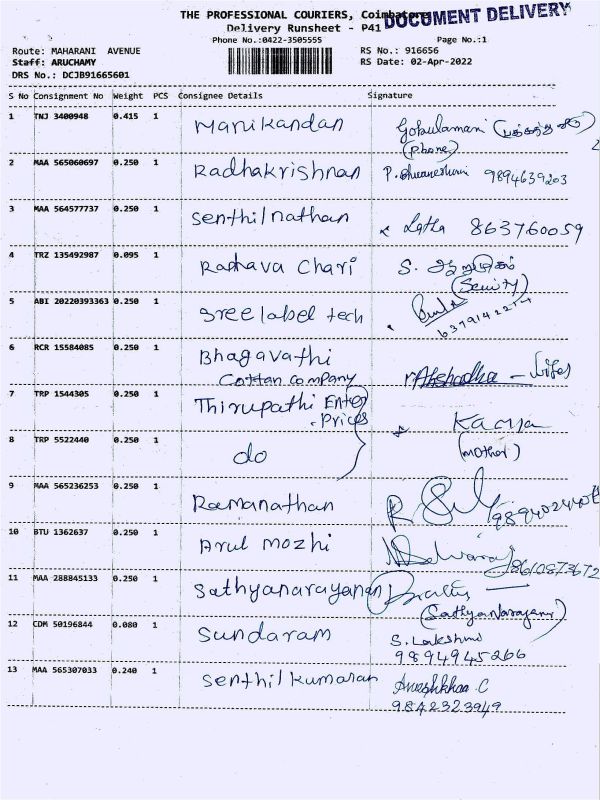 THE PROFESSIONAL COURIERS, Coimbatore
DOCUMENT DELIVERY
Delivery Runsheet - P41
Phone No.:0422-3505555 Page No.:1
Route: MAHARANI AVENUE RS No.: 916656
Staff: ARUCHAMY RS Date: 02-Apr-2022
DRS No.: DCJB91665601
S No Consignment No Weight PCS Consignee Details Signature
1 TNJ 3400948 0.415 1 Manikandan Gokulamani
(Phone)
2 MAA 565060697 0.250 1 Radhakrishnan P. Bhuaneshwari 9894639203
3 MAA 564577737 0.250 1 Senthilnathan Latha 863760059
4 TRZ 135492987 0.095 1 Raghava Chari S. ஆறுமுகம்
(Scuity)
5 ABI 20220393363 0.250 1 Sree label tech
6 RCR 15584085 0.250 1 Bhagavathi
Cottan company
7 TRP 1544305 0.250 1 Thirupathi Enter
Prices Kavya
(mother)
8 TRP 5522440 0.250 1 do
9 MAA 565236253 0.250 1 Ramanathan
10 BTU 1362637 0.250 1 Arul mozhi
8610873672
11 MAA 288845133 0.250 1 Sathyanarayanan
(Sathyanarayanan)
12 CDM 50196844 0.080 1 Sundaram S. Lakshmi
9894945266
13 MAA 565307033 0.240 1 Senthil kumaran Anushkhaa C
9842323949